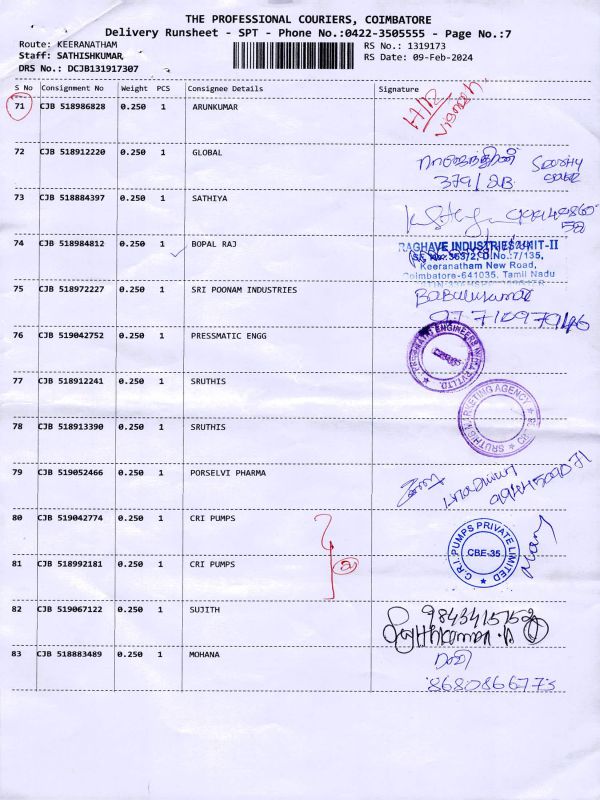 THE PROFESSIONAL COURIERS, COIMBATORE
Delivery Runsheet - SPT - Phone No.:0422-3505555 - Page No.:7
Route: KEERANATHAM RS No.: 1319173
Staff: SATHISHKUMAR, RS Date: 09-Feb-2024
DRS No.: DCJB131917307
S No Consignment No Weight PCS Consignee Details Signature
71 CJB 518986828 0.250 1 ARUNKUMAR
72 CJB 518912220 0.250 1 GLOBAL
379/2B
73 CJB 518884397 0.250 1 SATHIYA
74 CJB 518984812 0.250 1 BOPAL RAJ
RAGHAVE INDUSTRIES UNIT-II
S.F. No. 363/2, D.No.:7/135,
Keeranatham New Road,
Coimbatore-641035, Tamil Nadu
75 CJB 518972227 0.250 1 SRI POONAM INDUSTRIES
76 CJB 519042752 0.250 1 PRESSMATIC ENGG
77 CJB 518912241 0.250 1 SRUTHIS
SRUTHIS MARKETING AGENCY
78 CJB 518913390 0.250 1 SRUTHIS
79 CJB 519052466 0.250 1 PORSELVI PHARMA
80 CJB 519042774 0.250 1 CRI PUMPS
C.R.I. PUMPS PRIVATE LIMITED
CBE-35
81 CJB 518992181 0.250 1 CRI PUMPS
2
82 CJB 519067122 0.250 1 SUJITH
83 CJB 518883489 0.250 1 MOHANA
8680866773